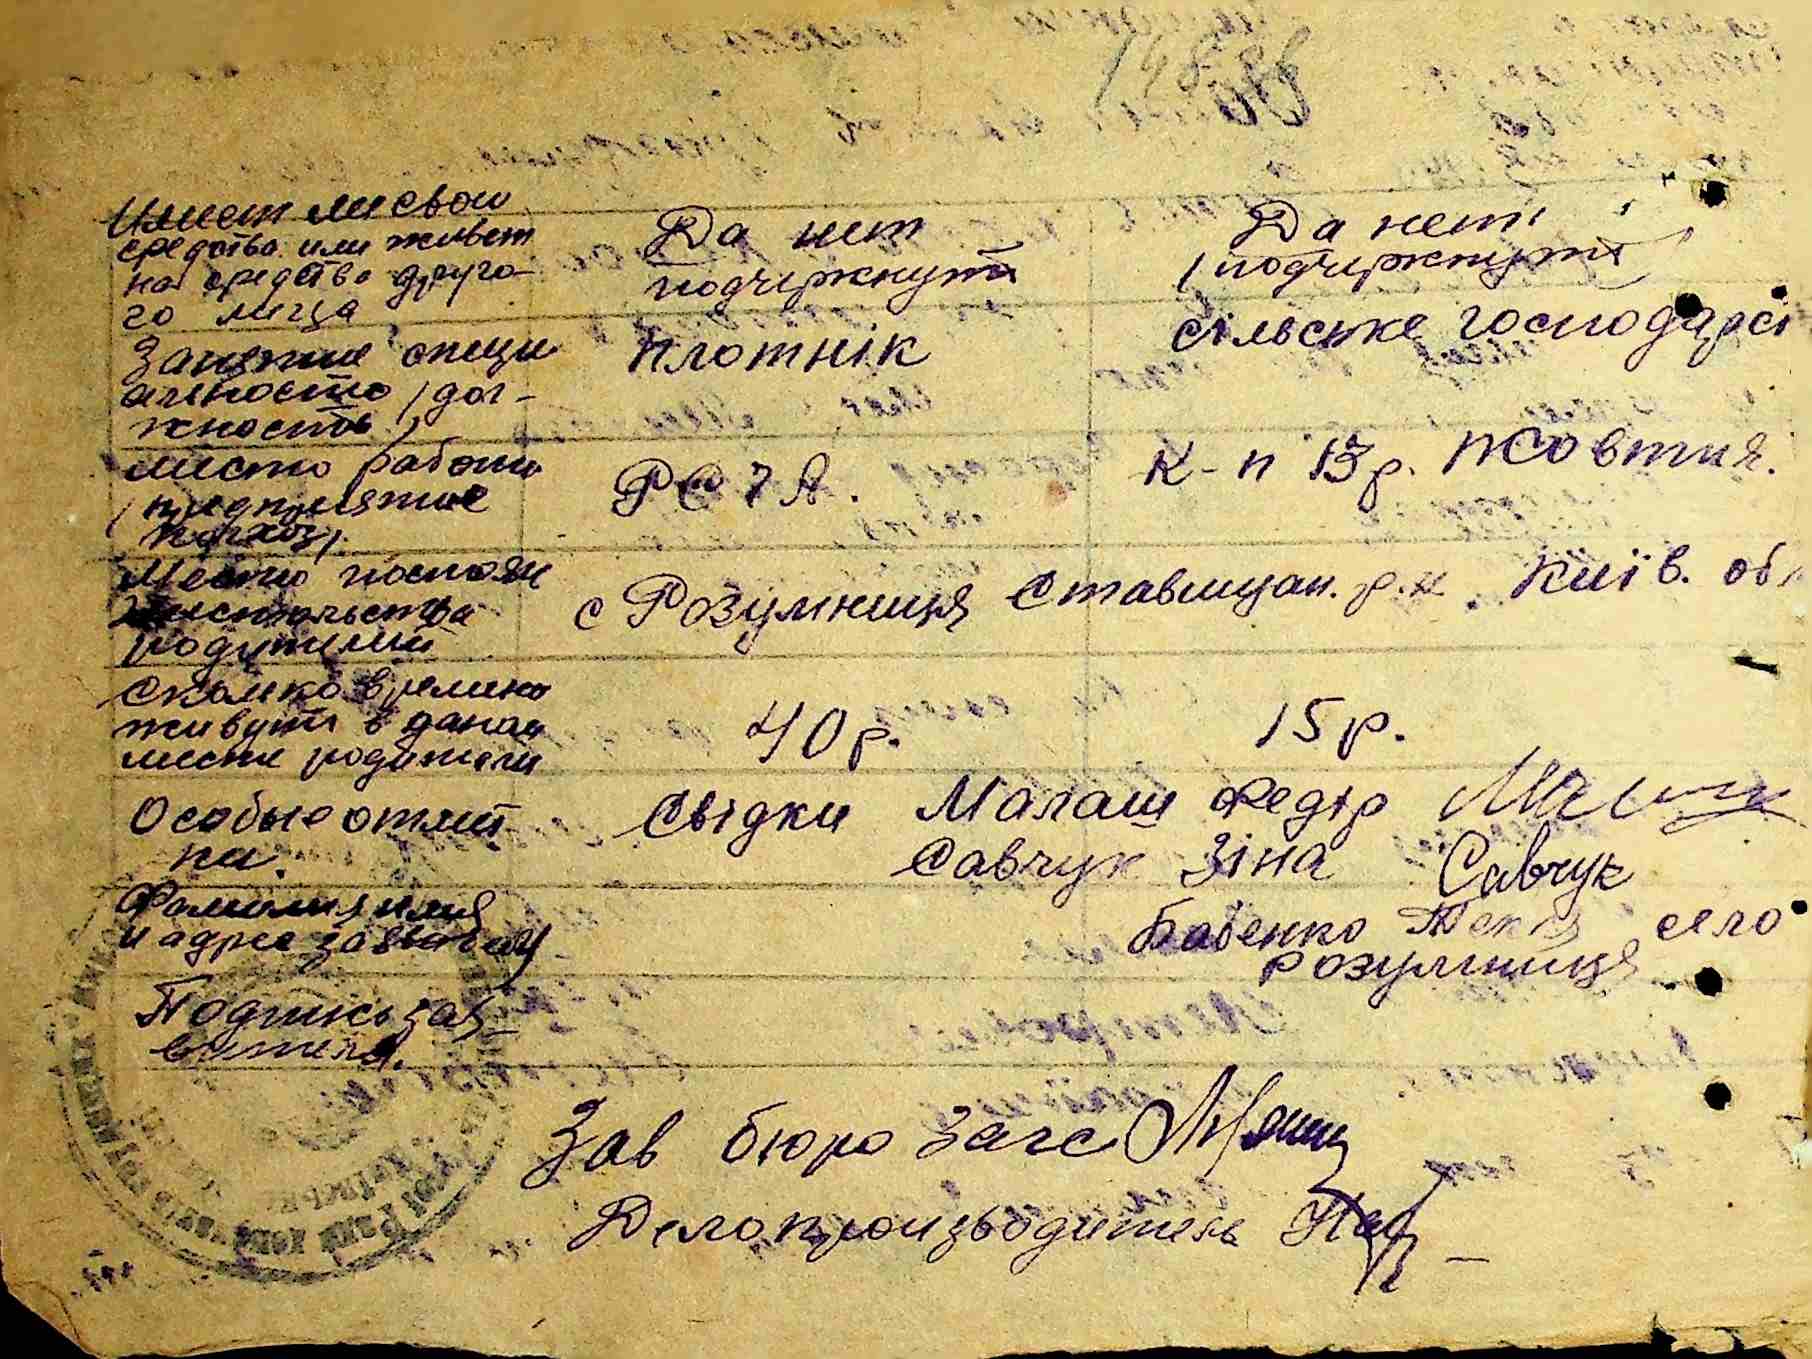 Имеет ли свои
средства или живет
на средства друго-
го лица
Да нет
подчеркнуть
Да нет
(подчеркнуть)
Занятие специ
альность (дол-
жность)
плотнік
сільське господарст
Место работы
(предприятие
колхоз).
РСЧА.
к-п 13 р. Жовтня.
Место постоян
жительства
родителий
с Розумниця Ставищан. р.н. Київ. обл
Сколько времини
живут в даном
месте родители
40 р.
15 р.
Особые отмет
ки.
Свідки Малаш Федір
Савчук Зіна Савчук
Фамилия имя
и адрес заявителя
Бабенко село
Розумниця
Подпись зая-
вителя.
Зав бюро Загс
Делопроизводитель